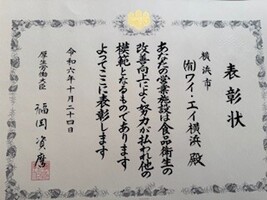 表彰状
横浜市
㈲ワイ・エイ横浜 殿
あなたの営業施設は食品衛生の
改善向上によく努力が払われ他の
模範となるものであります
よってここに表彰します
令和六年十月二十四日
厚生労働大臣
福岡資麿